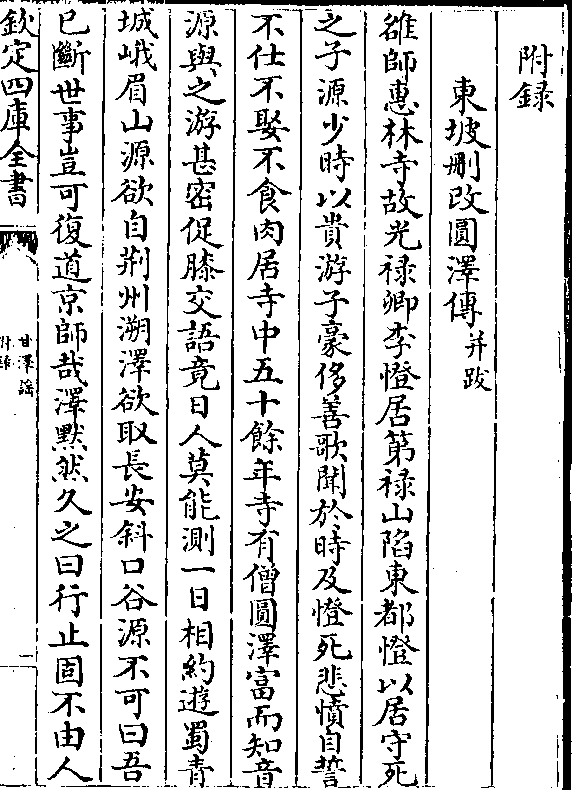 附録
東坡刪改圓澤傳并跋
雒師惠林寺故光禄卿李憕居第禄山陷東都憕以居守死
之子源少時以貴游子豪侈善歌聞於時及憕死悲憤自誓
不仕不娶不食肉居寺中五十餘年寺有僧圓澤富而知音
源與之游甚密促膝交語竟日人莫能測一日相約遊蜀青
城峨眉山源欲自荆州溯澤欲取長安斜口谷源不可曰吾
已斷世事豈可復道京師哉澤黙然久之曰行止固不由人
欽定四庫全書
甘澤謡
附録
一